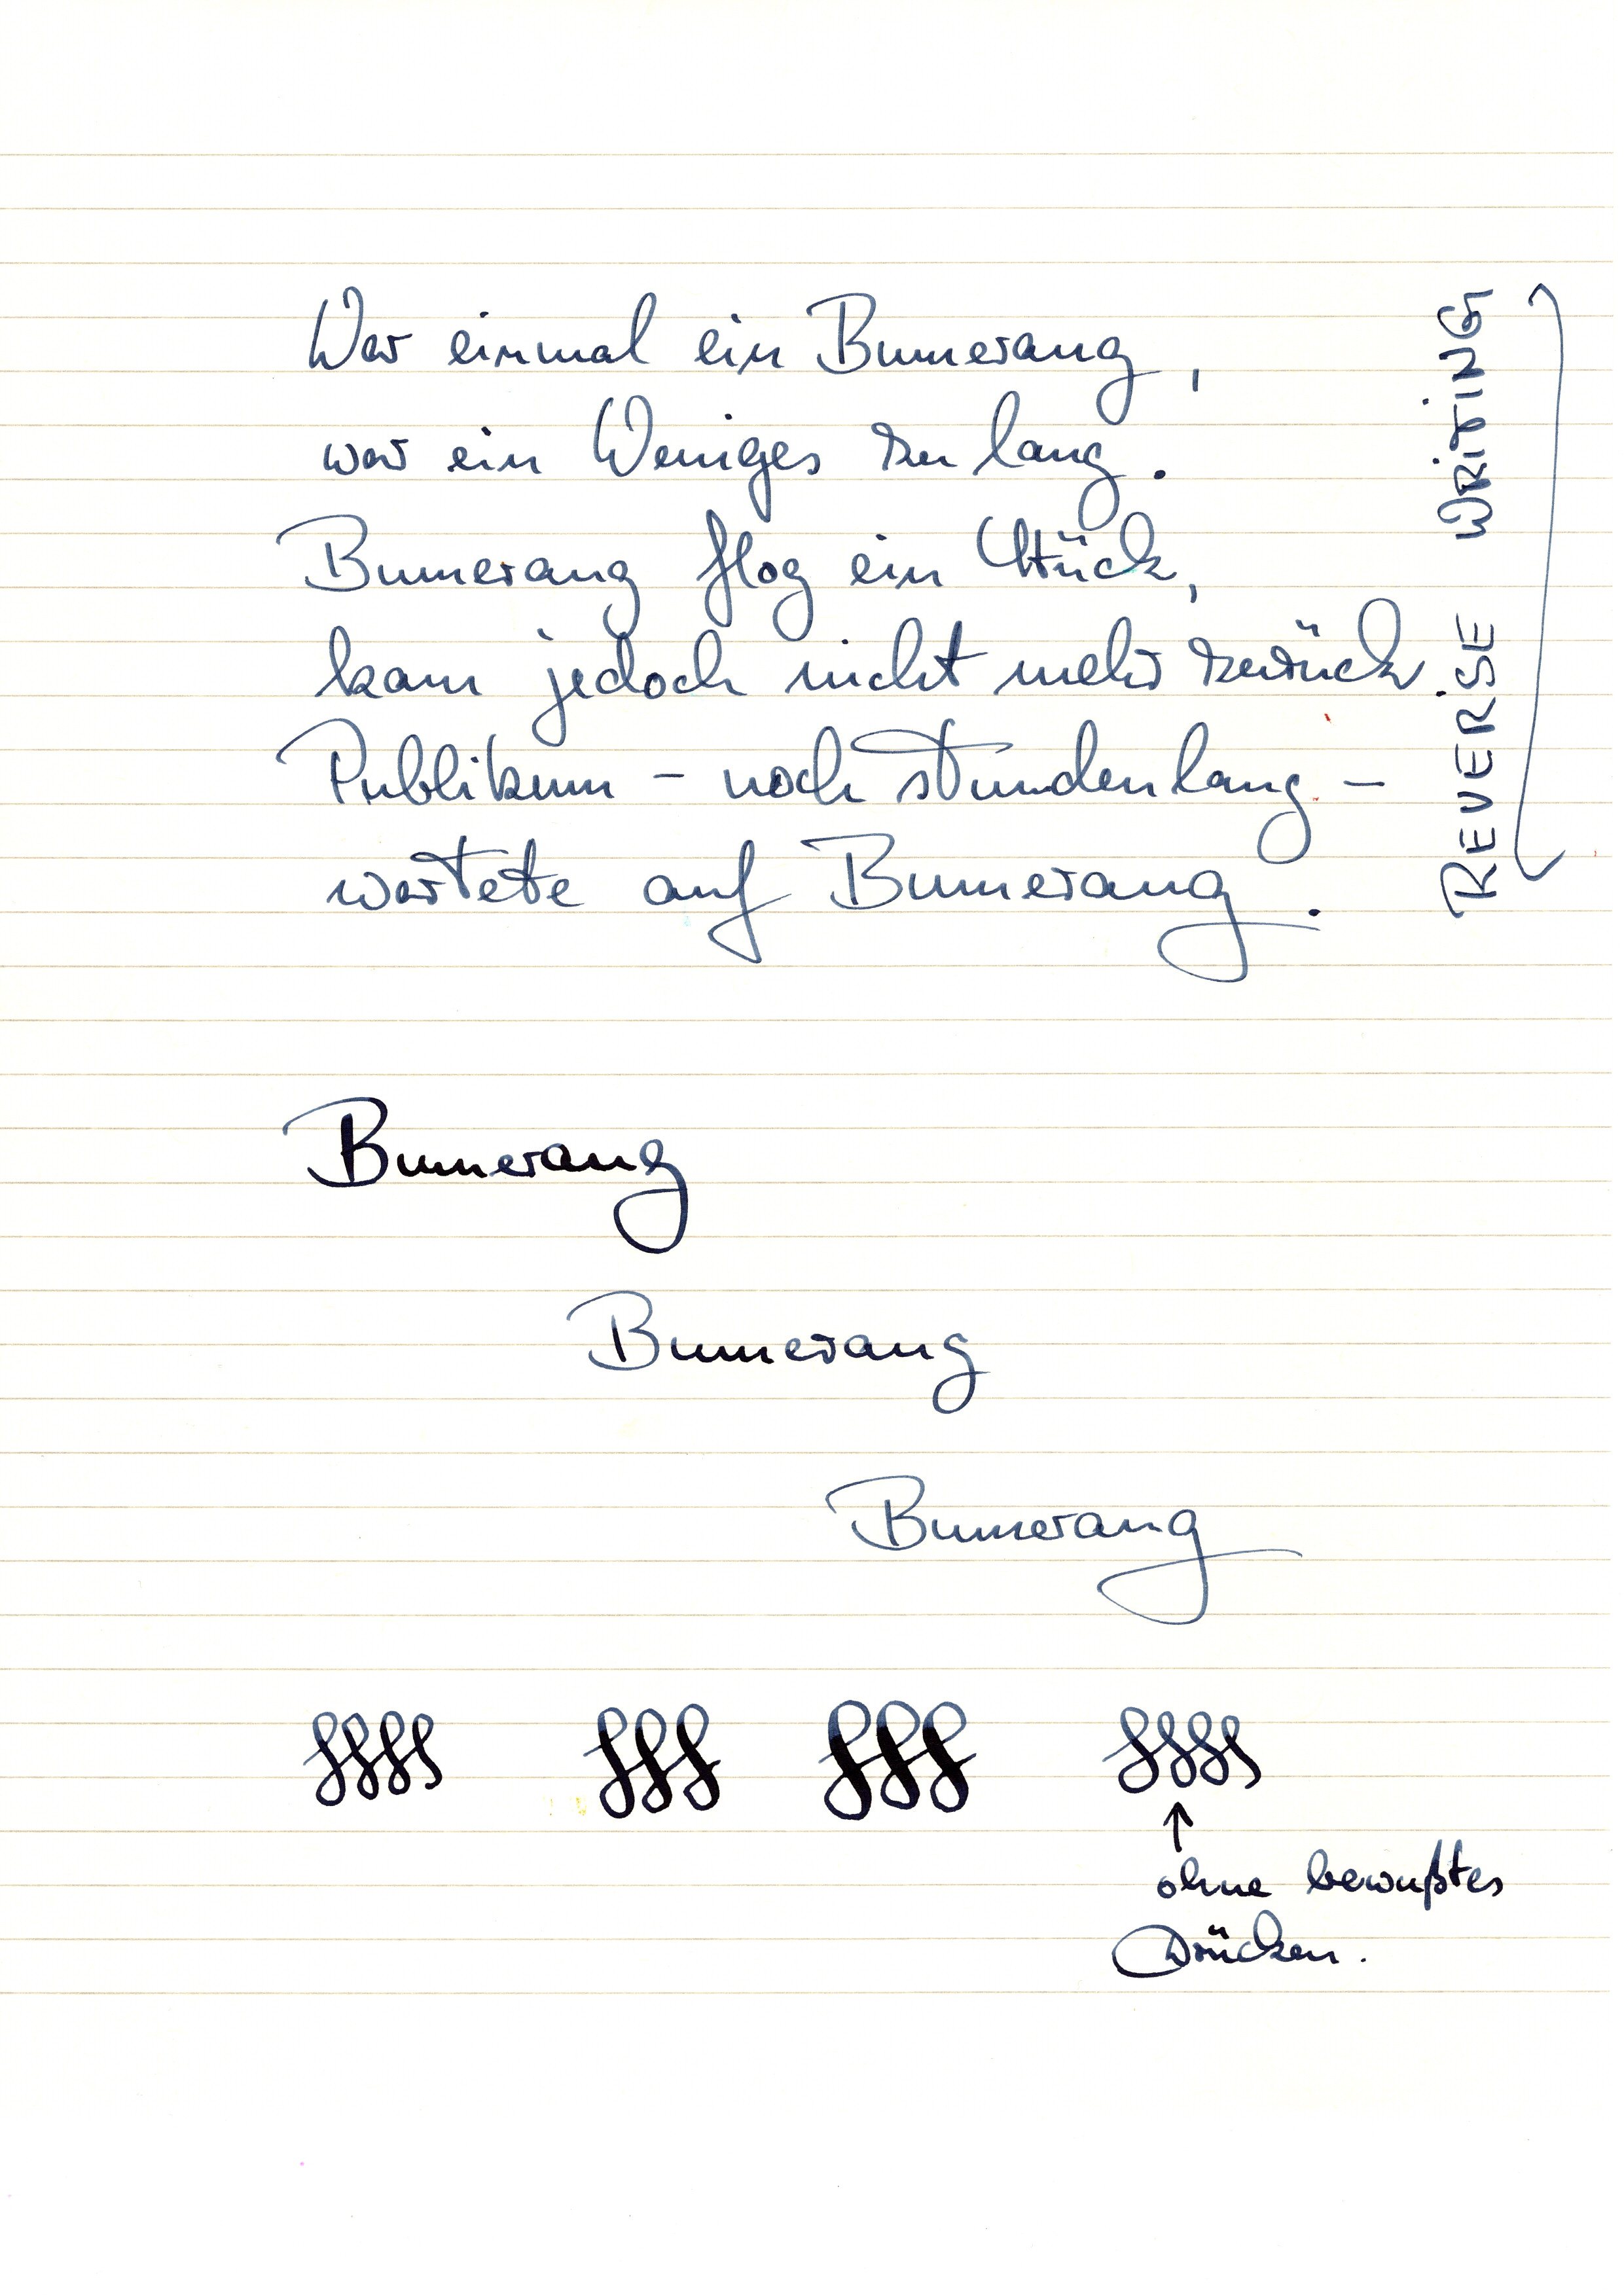 War einmal ein Bumerang,
war ein Weniges zu lang.
Bumerang flog ein Stück,
kam jedoch nicht mehr zurück.
Publikum – noch stundenlang –
wartete auf Bumerang.
REVERSE WRITING
Bumerang
Bumerang
Bumerang
ohne bewußtes
Drücken.